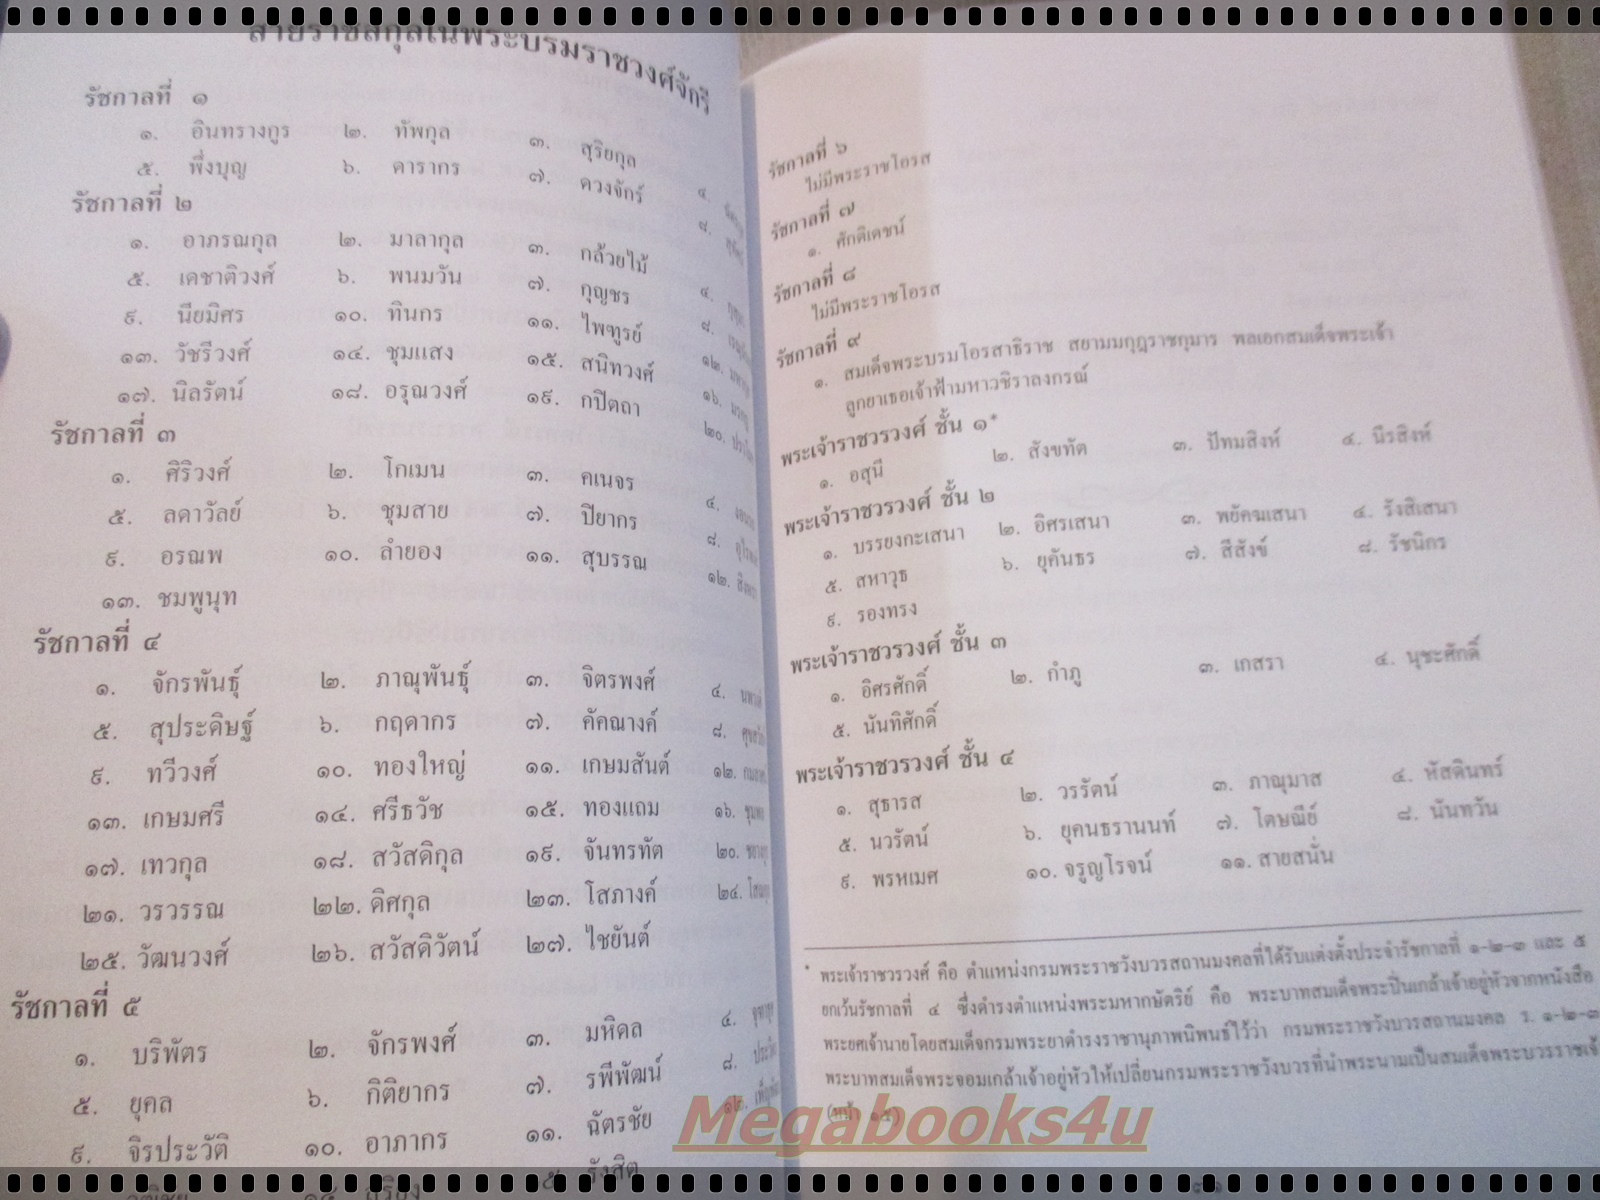 สายราชสกุลในพระบรมราชวงศ์จักรี
รัชกาลที่ ๑
๑. อินทรางกูร ๒. ทัพกุล ๓. สุริยกุล ๔.
๕. พึ่งบุญ ๖. ดารากร ๗. ดวงจักร์ ๘.
รัชกาลที่ ๒
๑. อาภรณกุล ๒. มาลากุล ๓. กล้วยไม้ ๔.
๕. เดชาติวงศ์ ๖. พนมวัน ๗. กุญชร ๘.
๙. นียมิศร ๑๐. ทินกร ๑๑. ไพฑูรย์ ๑๒.
๑๓. วัชรีวงศ์ ๑๔. ชุมแสง ๑๕. สนิทวงศ์ ๑๖.
๑๗. นิลรัตน์ ๑๘. อรุณวงศ์ ๑๙. กปิตถา ๒๐.
รัชกาลที่ ๓
๑. ศิริวงศ์ ๒. โกเมน ๓. คเนจร ๔.
๕. ลดาวัลย์ ๖. ชุมสาย ๗. ปิยากร ๘.
๙. อรณพ ๑๐. ลำยอง ๑๑. สุบรรณ ๑๒.
๑๓. ชมพูนุท
รัชกาลที่ ๔
๑. จักรพันธุ์ ๒. ภาณุพันธุ์ ๓. จิตรพงศ์ ๔.
๕. สุประดิษฐ์ ๖. กฤดากร ๗. คัคณางค์ ๘.
๙. ทวีวงศ์ ๑๐. ทองใหญ่ ๑๑. เกษมสันต์ ๑๒.
๑๓. เกษมศรี ๑๔. ศรีธวัช ๑๕. ทองแถม ๑๖.
๑๗. เทวกุล ๑๘. สวัสดิกุล ๑๙. จันทรทัต ๒๐.
๒๑. วรวรรณ ๒๒. ดิศกุล ๒๓. โสภางค์ ๒๔.
๒๕. วัฒนวงศ์ ๒๖. สวัสดิวัตน์ ๒๗. ไชยันต์
รัชกาลที่ ๕
๑. บริพัตร ๒. จักรพงศ์ ๓. มหิดล ๔.
๕. ยุคล ๖. กิติยากร ๗. รพีพัฒน์ ๘.
๙. จิรประวัติ ๑๐. อาภากร ๑๑. ฉัตรชัย ๑๒.
รังสิต
รัชกาลที่ ๖
ไม่มีพระราชโอรส
รัชกาลที่ ๗
๑. ศักดิเดชน์
รัชกาลที่ ๘
ไม่มีพระราชโอรส
รัชกาลที่ ๙
๑. สมเด็จพระบรมโอรสาธิราช สยามมกุฎราชกุมาร พลเอกสมเด็จพระเจ้า
ลูกยาเธอเจ้าฟ้ามหาวชิราลงกรณ์
พระเจ้าราชวรวงศ์ ชั้น ๑*
๑. อสุนี ๒. สังขทัต ๓. ปัทมสิงห์ ๔. นีรสิงห์
พระเจ้าราชวรวงศ์ ชั้น ๒
๑. บรรยงกะเสนา ๒. อิศรเสนา ๓. พยัคฆเสนา ๔. รังสิเสนา
๕. สหาวุธ ๖. ยุคันธร ๗. สีสังข์ ๘. รัชนิกร
๙. รองทรง
พระเจ้าราชวรวงศ์ ชั้น ๓
๑. อิศรศักดิ์ ๒. กำภู ๓. เกสรา ๔. นุชะศักดิ์
๕. นันทิศักดิ์
พระเจ้าราชวรวงศ์ ชั้น ๔
๑. สุธารส ๒. วรรัตน์ ๓. ภาณุมาส ๔. หัสดินทร์
๕. นวรัตน์ ๖. ยุคนธรานนท์ ๗. โตษณีย์ ๘. นันทวัน
๙. พรหเมศ ๑๐. จรูญโรจน์ ๑๑. สายสนั่น
* พระเจ้าราชวรวงศ์ คือ ตำแหน่งกรมพระราชวังบวรสถานมงคลที่ได้รับแต่งตั้งประจำรัชกาลที่ ๑-๒-๓ และ ๕
ยกเว้นรัชกาลที่ ๔ ซึ่งดำรงตำแหน่งพระมหากษัตริย์ คือ พระบาทสมเด็จพระปิ่นเกล้าเจ้าอยู่หัวจากหนังสือ
พระยศเจ้านายโดยสมเด็จกรมพระยาดำรงราชานุภาพนิพนธ์ไว้ว่า กรมพระราชวังบวรสถานมงคล ร. ๑-๒-๓
พระบาทสมเด็จพระจอมเกล้าเจ้าอยู่หัวให้เปลี่ยนกรมพระราชวังบวรที่นำพระนามเป็นสมเด็จพระบวรราชเจ้
(หน้า
Megabooks4u